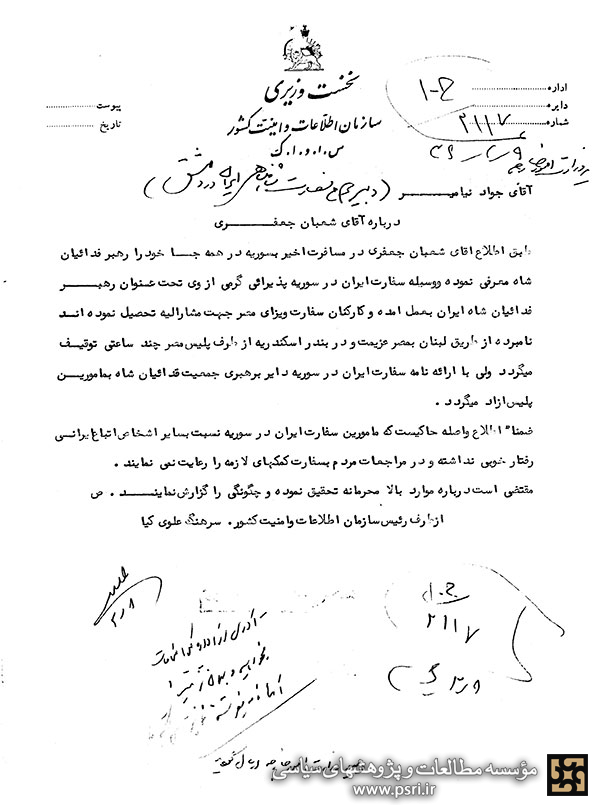 نخست وزیری
سازمان اطلاعات و امنیت کشور
س.ا.و.ا.ک
اداره
دایره
شماره
ح-۱
۲۱۱۷
پیوست
تاریخ
آقای جواد نیامیــر ( دبیر در دمشق )
درباره آقای شعبان جعفـــری
طبق اطلاع اقای شعبان جعفری در مسافرت اخیر بسوریه در همه جـا خود را رهبر فدائیان
شاه معرفی نموده ووسیله سفارت ایران در سوریه پذیرائی گرمی از وی تحت عنوان رهبـر
فدائیان شاه ایران بعمل امده و کارکنان سفارت ویزای مصر جهت مشارالیه تحصیل نموده انـد
نامبرده از طریق لبنان بمصر عزیمت و در بندر اسکندریه از طرف پلیس مصر چند ساعتی توقیـف
میگردد ولی با ارائه نامه سفارت ایران در سوریه دایر برهبری جمعیت فدائیان شاه بمامورین
پلیس ازاد میگردد .
ضمناً اطلاع واصله حاکیست که مامورین سفارت ایران در سوریه نسبت بسایر اشخاص اتباع ایرانـی
رفتار خوبی نداشته و در مراجعات مردم بسفارت کمکهای لازمه را رعایت نمی نمایند .
مقتضی است درباره موارد بالا محرمانه تحقیق نموده و چگونگی را گزارش نماینـــد . ص
از طرف رئیس سازمان اطلاعات وامنیت کشور. سرهنگ علوی کیا
ح-۱
۲۱۱۷
مؤسسه مطالعات و پژوهشهای سیاسی
www.psri.ir